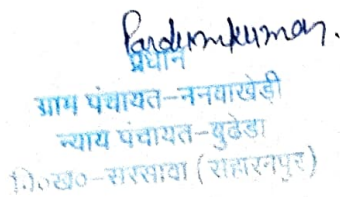 Pardumnkumar.
प्रधान
ग्राम पंचायत-ननवाखेड़ी
न्याय पंचायत-बुढेडा
वि०ख०-सरसावा (सहारनपुर)